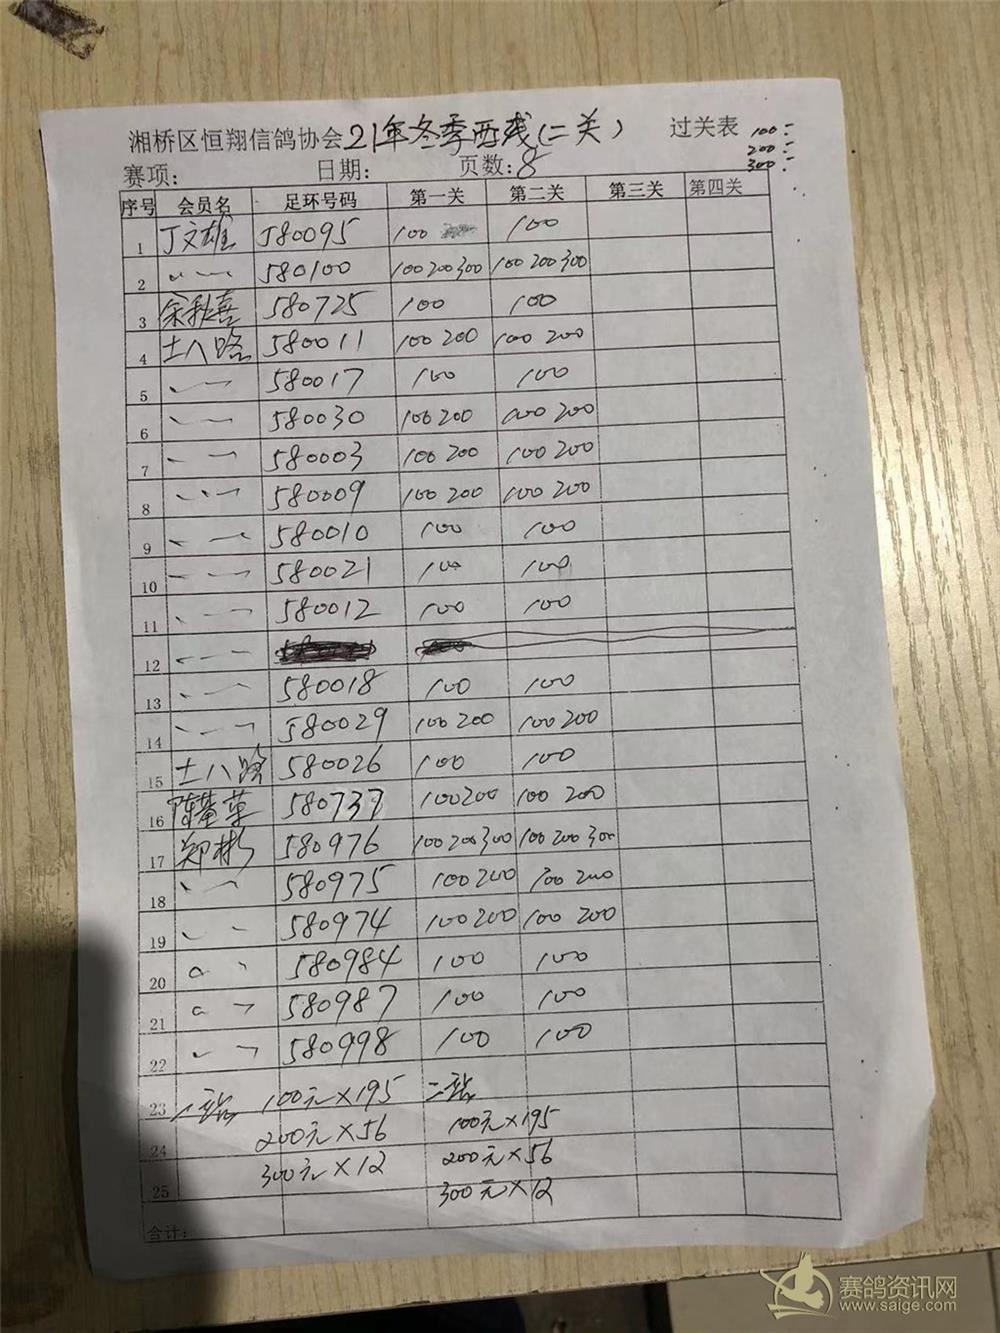 湘桥区恒翔信鸽协会21年冬季两浅(二关) 过关表 100:
200:
赛项: 日期: 页数:8 300:
序号 会员名 足环号码 第一关 第二关 第三关 第四关
1 丁文雄 580095 100 100
2 580100 100 200 300 100 200 300
3 余秋喜 580725 100 100
4 土八路 580011 100 200 100 200
5 580017 100 100
6 580030 100 200 100 200
7 580003 100 200 100 200
8 580009 100 200 100 200
9 580010 100 100
10 580021 100 100
11 580012 100 100
12
13 580018 100 100
14 580029 100 200 100 200
15 土八路 580026 100 100
16 580737 100 200 100 200
17 郑彬 580976 100 200 300 100 200 300
18 580975 100 200 100 200
19 580974 100 200 100 200
20 580984 100 100
21 580987 100 100
22 580998 100 100
23 一站 100元×195 二站
24 200元×56 100元×195
25 300元×12 200元×56
300元×12
合计:
赛鸽资讯网
www.saige.com